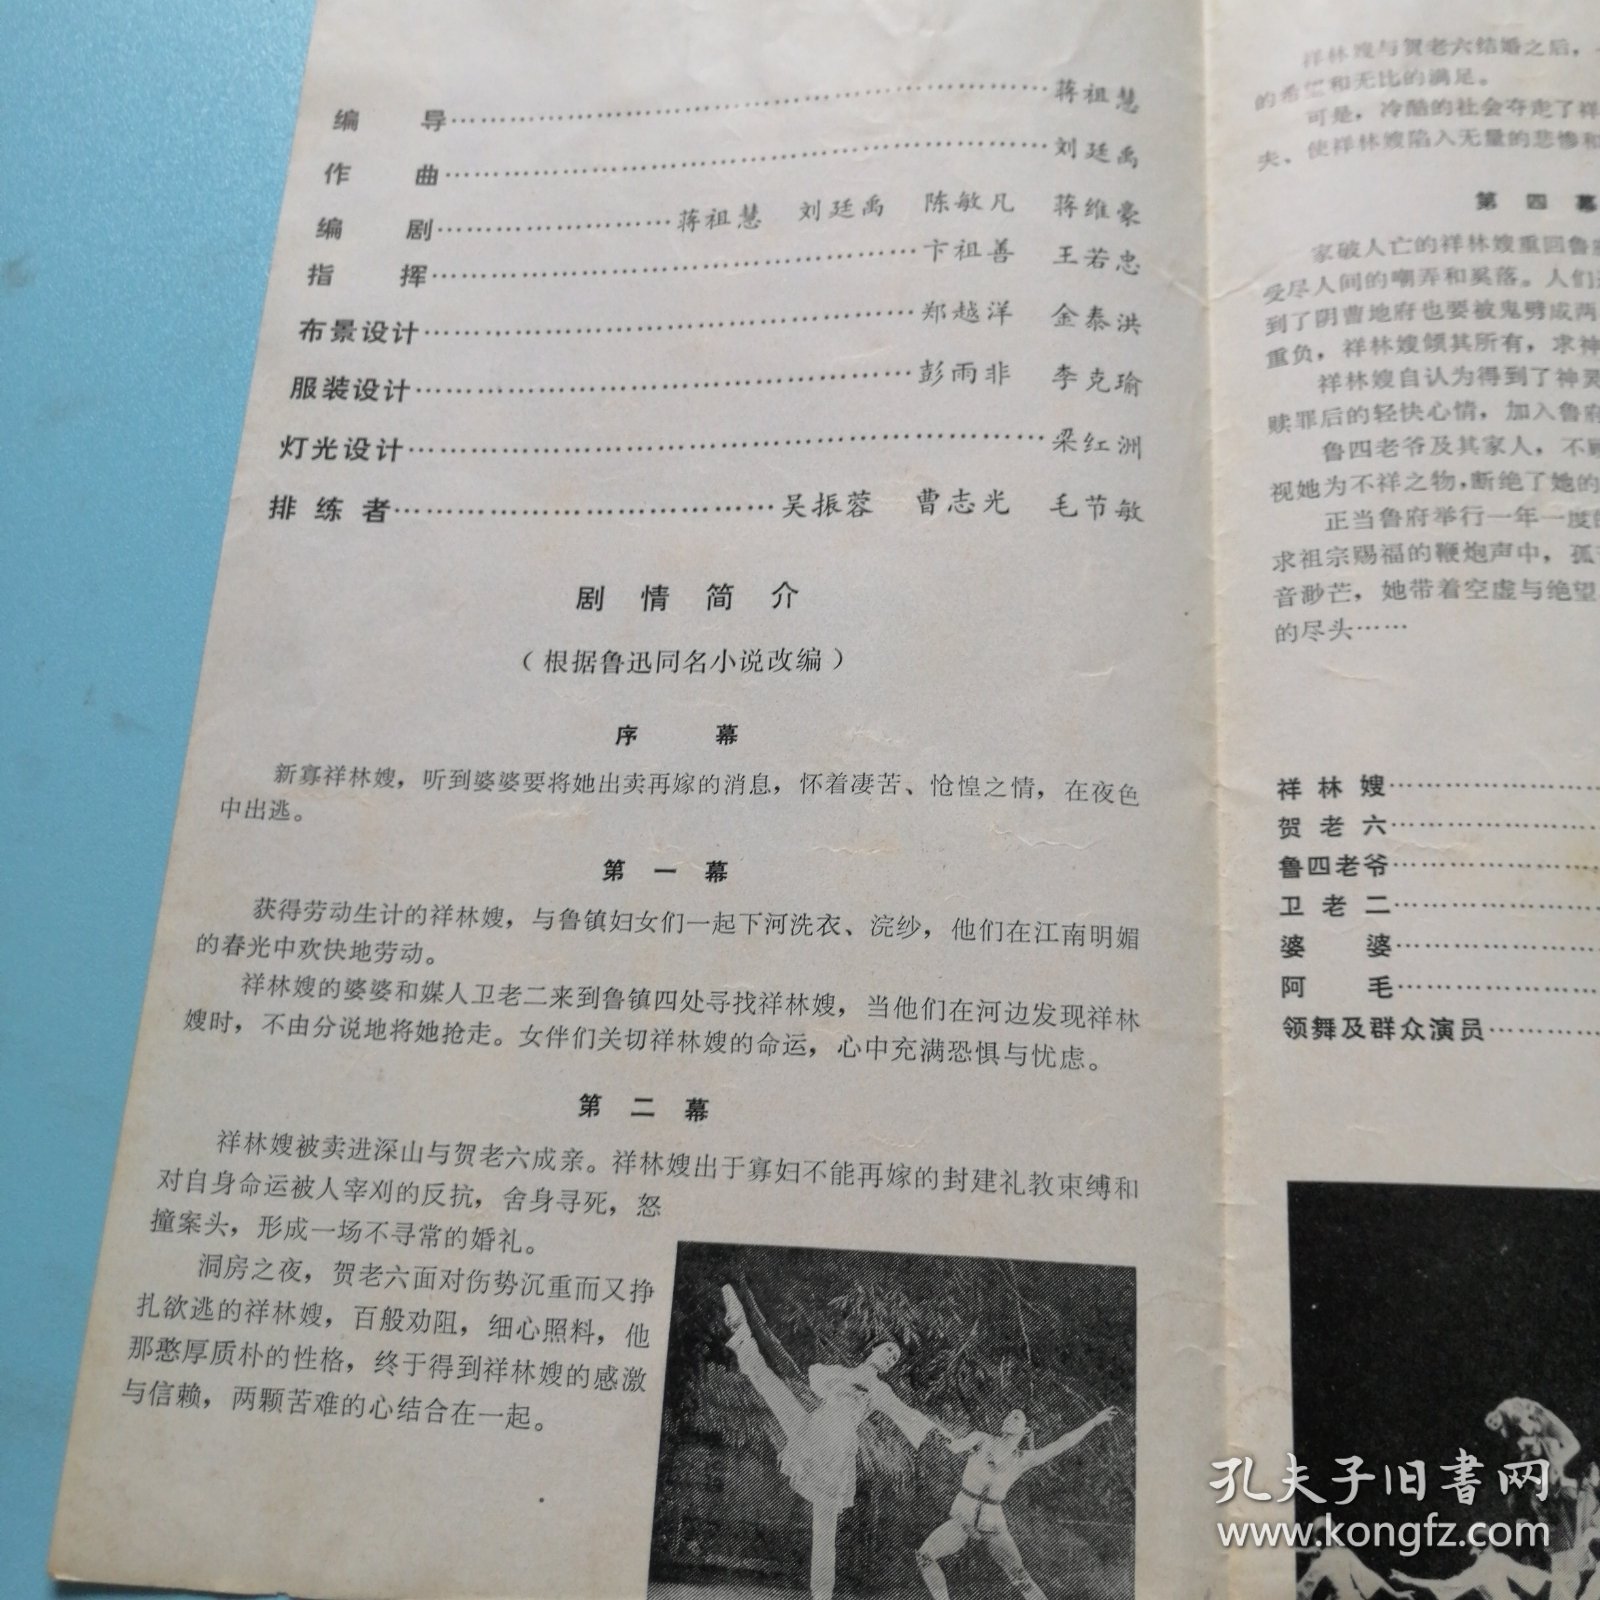 编 导……………………………………………………蒋祖慧
作 曲……………………………………………………刘廷禹
编 剧……………………蒋祖慧 刘廷禹 陈敏凡 蒋维豪
指 挥…………………………………………卞祖善 王若忠
布景设计…………………………………………郑越洋 金泰洪
服装设计…………………………………………彭雨非 李克瑜
灯光设计……………………………………………………梁红洲
排练者………………………………吴振蓉 曹志光 毛节敏
剧情简介
（根据鲁迅同名小说改编）
序 幕
新寡祥林嫂，听到婆婆要将她出卖再嫁的消息，怀着凄苦、怆惶之情，在夜色
中出逃。
第一幕
获得劳动生计的祥林嫂，与鲁镇妇女们一起下河洗衣、浣纱，他们在江南明媚
的春光中欢快地劳动。
祥林嫂的婆婆和媒人卫老二来到鲁镇四处寻找祥林嫂，当他们在河边发现祥林
嫂时，不由分说地将她抢走。女伴们关切祥林嫂的命运，心中充满恐惧与忧虑。
第二幕
祥林嫂被卖进深山与贺老六成亲。祥林嫂出于寡妇不能再嫁的封建礼教束缚和
对自身命运被人宰刈的反抗，舍身寻死，怒
撞案头，形成一场不寻常的婚礼。
洞房之夜，贺老六面对伤势沉重而又挣
扎欲逃的祥林嫂，百般劝阻，细心照料，他
那憨厚质朴的性格，终于得到祥林嫂的感激
与信赖，两颗苦难的心结合在一起。
祥林嫂与贺老六结婚之后，
的希望和无比的满足。
可是，冷酷的社会夺走了祥
夫、使祥林嫂陷入无量的悲惨和
第四幕
家破人亡的祥林嫂重回鲁府
受尽人间的嘲弄和奚落。人们
到了阴曹地府也要被鬼劈成两
重负，祥林嫂倾其所有，求神
祥林嫂自认为得到了神灵
赎罪后的轻快心情，加入鲁府
鲁四老爷及其家人，不顾
视她为不祥之物，断绝了她的
正当鲁府举行一年一度的
求祖宗赐福的鞭炮声中，孤
音渺茫，她带着空虚与绝望
的尽头……
祥林嫂……………………
贺老六……………………
鲁四老爷…………………
卫老二……………………
婆 婆……………………
阿 毛……………………
领舞及群众演员…………
孔夫子旧书网
www.kongfz.com